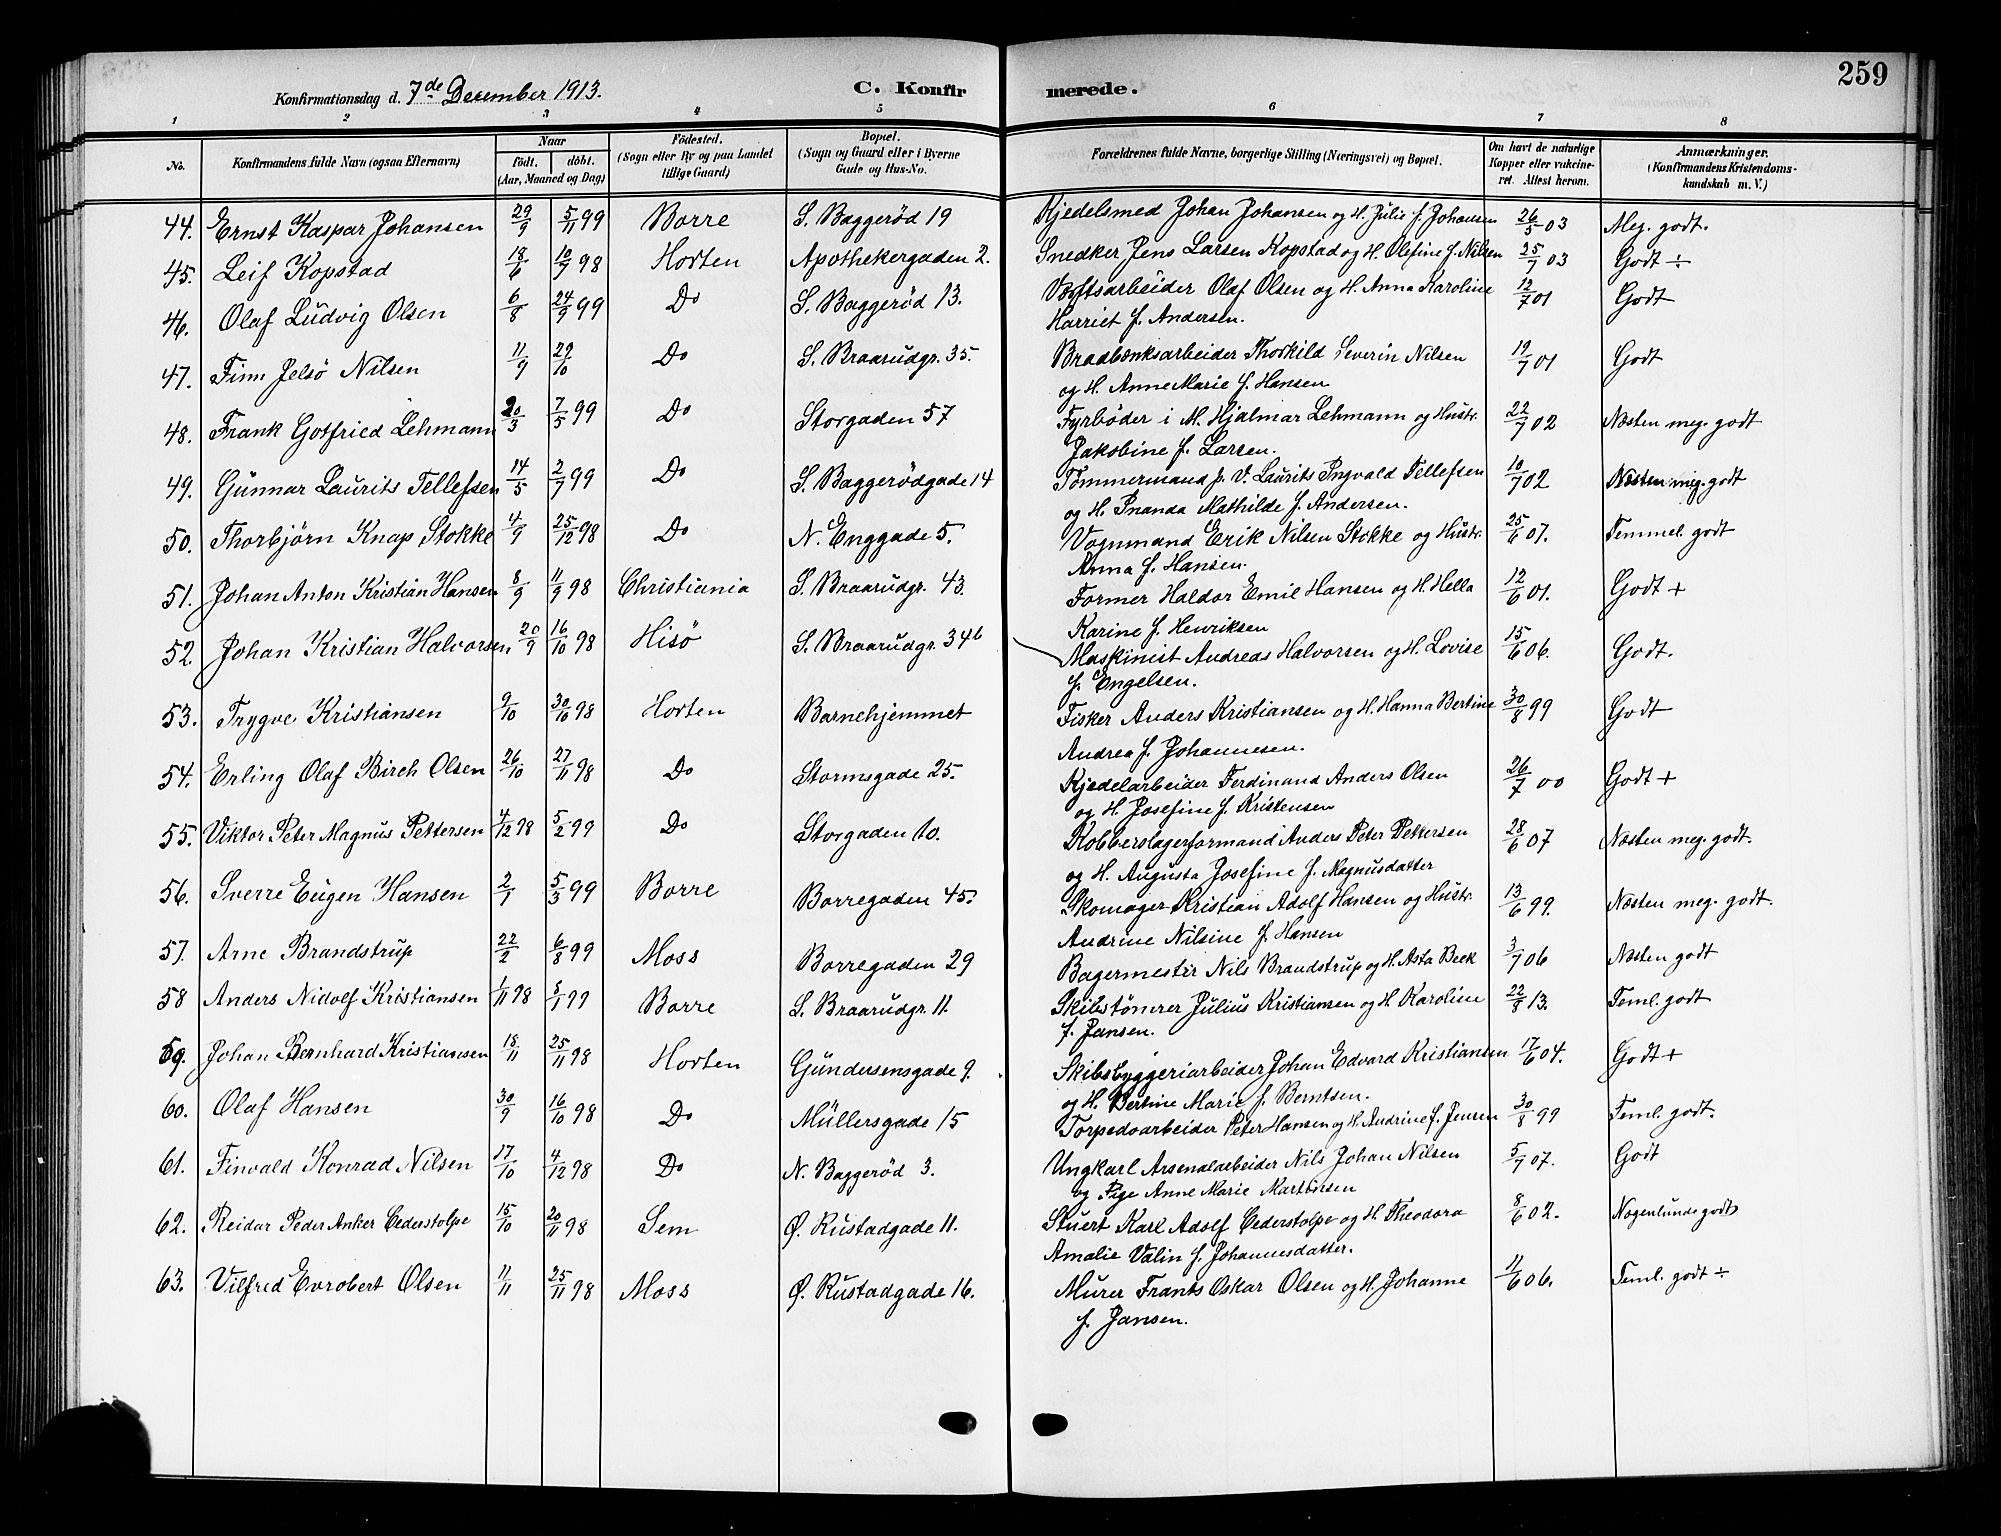 259
Konfirmationsdag d. 7de December 1913. C. Konfirmerede.
1 2 3 4 5 6 7 8
No. Konfirmandens fulde Navn (ogsaa Efternavn) Naar födt. döbt. (Aar, Maaned og Dag) Födested. (Sogn eller By og paa Landet tillige Gaard) Bopæl. (Sogn og Gaard eller i Byerne Gade og Hus-No. Forældrenes fulde Navne, borgerlige Stilling (Næringsvei) og Bopæl. Om havt de naturlige Kopper eller vakcineret. Attest herom. Anmærkninger. (Konfirmandens Kristendomskundskab m. V.)
44. Ernst Kaspar Johansen 29/9 5/11 99 Borre S. Baggerød 19 Kjedelsmed Johan Johansen og H. Julie f. Johansen 26/5 03 Meg. godt.
45. Leif Kopstad 18/6 10/7 98 Horten Apothekergaden 2. Snedker Jens Larsen Kopstad og H. Olefine f. Nilsen 25/7 03 Godt ÷
46. Olaf Ludvig Olsen 6/8 24/9 99 Do S. Baggerød 13. Værftsarbeider Olaf Olsen og H. Anna Karoline 12/7 01 Godt
Harriet f. Andersen.
47. Finn Jelsö Nilsen 11/9 29/10 Do S. Braarudgr. 35. Braabænksarbeider Thorkild Severin Nilsen 19/7 01 Godt
og H. Anne Marie f. Hansen
48. Frank Gotfried Lehmann 20/3 7/5 99 Do Storgaden 57 Fyrbøder i M. Hjalmar Lehmann og Hustr. 22/7 02 Næsten meg. godt
Jakobine f. Larsen.
49. Gunnar Laurits Tellefsen 14/5 2/7 99 Do S. Baggerödgade 14 Tømmermand p. V. Laurits Ingvald Tellefsen 10/7 02 Næsten meg. godt
og H. Inanda Mathilde f. Andersen.
50. Thorbjörn Knap Stokke 4/9 25/12 98 Do N. Enggade 5. Vognmand Erik Nilsen Stokke og Hustr. 25/6 07. Temmel. godt
Anna f. Hansen.
51. Johan Anton Kristian Hansen 8/9 11/9 98 Christiania S. Braarudgr. 43. Former Haldor Emil Hansen og H. Hella 12/6 01. Godt +
Karine f. Henriksen
52. Johan Kristian Halvorsen 20/9 16/10 98 Hisö S. Braarudgr. 34b Maskinist Andreas Halvorsen og H. Lovise 15/6 06. Godt.
f. Engelsen.
53. Trygve Kristiansen 9/10 30/10 98 Horten Barnehjemmet Fisker Anders Kristiansen og H. Hanna Bertine 30/8 99 Godt
Andrea f. Johannesen.
54. Erling Olaf Birch Olsen 26/10 27/11 98 Do Stormsgade 25. Kjedelarbeider Ferdinand Anders Olsen 26/7 00 Godt +
og H. Josefine f. Kristensen
55. Viktor Peter Magnus Pettersen 4/12 98 5/2 99 Do Storgaden 10. Kobberslagerformand Anders Peter Pettersen 28/6 07 Næsten meg. godt.
og H. Augusta Josefine f. Magnusdatter
56. Sverre Eugen Hansen 2/1 5/3 99 Borre Borregaden 45. Skomager Kristian Adolf Hansen og Hustr. 13/6 99. Næsten meg. godt.
Andrine Nilsine f. Hansen
57. Arne Brandstrup 22/2 6/8 99 Moss Borregaden 29 Bagermestir Nils Brandstrup og H. Asta Beck 3/7 06 Næsten godt
58 Anders Nidolf Kristiansen 1/11 98 5/1 99 Borre S. Braarudgr. 11. Skibstømrer Julius Kristiansen og H. Karoline 22/8 13. Teml. godt
f. Jansen.
59. Johan Bernhard Kristiansen 18/11 25/11 98 Horten Gundersensgade 9. Skibsbyggeriarbeider Johan Edvard Kristiansen 17/6 04. Godt +
og H. Bertine Marie f. Berntsen.
60. Olaf Hansen 30/9 16/10 98 Do Müllersgade 15 Torpedoarbeider Peter Hansen og H. Andrine f. Jensen 30/8 99 Teml. godt.
61. Finvald Konrad Nilsen 17/10 4/12 98 Do N. Baggerød 3. Ungkarl Arsenalarbeider Nils Johan Nilsen 5/7 07. Godt
og Pige Anne Marie Martinsen
62. Reidar Peder Anker Cederstolpe 15/10 20/11 98 Sem Ø. Rustadgade 11. Stuert Karl Adolf Cederstolpe og H. Theodora 8/6 02. Nogenlunde godt
Amalie Valin f. Johannesdatter.
63. Vilfred Evrobert Olsen 11/11 25/11 98 Moss Ø. Rustadgade 16. Murer Frants Oskar Olsen og H. Johanne 11/6 06. Teml. godt ÷
f. Jansen.